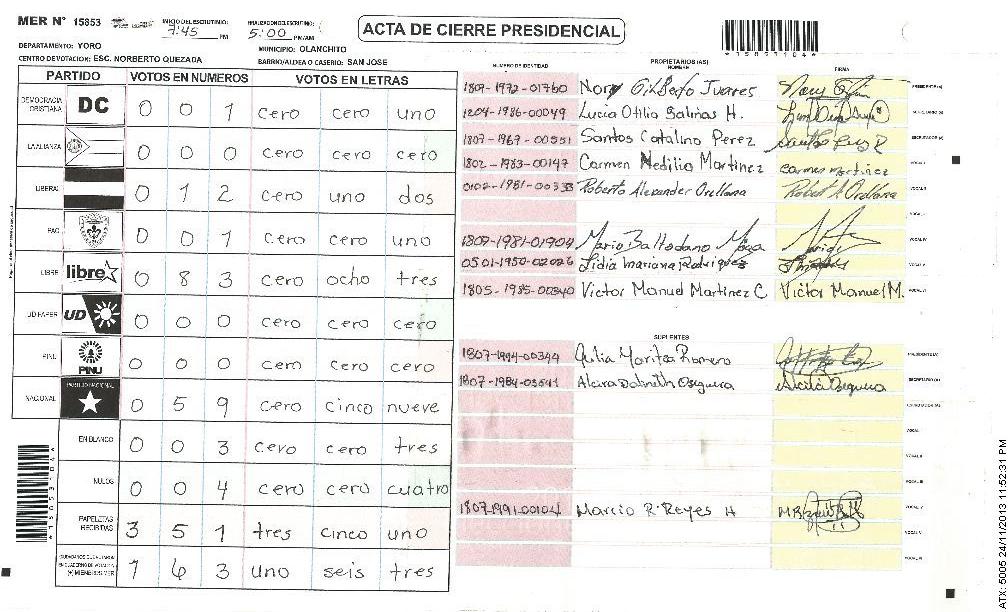 MER N° 15853 INICIO DEL ESCRUTINIO: 7:45 PM FINALIZACION DEL ESCRUTINIO: 5:00 PM/AM
ACTA DE CIERRE PRESIDENCIAL
DEPARTAMENTO: YORO MUNICIPIO: OLANCHITO
CENTRO DE VOTACION: ESC. NORBERTO QUEZADA BARRIO/ALDEA O CASERIO: SAN JOSE
PARTIDO VOTOS EN NUMEROS VOTOS EN LETRAS
DEMOCRACIA CRISTIANA DC 0 0 1 cero cero uno
LA ALIANZA 0 0 0 cero cero cero
LIBERAL 0 1 2 cero uno dos
PAC 0 0 1 cero cero uno
LIBRE libre 0 8 3 cero ocho tres
UD FAPER UD 0 0 0 cero cero cero
PINU PINU 0 0 0 cero cero cero
NACIONAL PARTIDO NACIONAL 0 5 9 cero cinco nueve
EN BLANCO 0 0 3 cero cero tres
NULOS 0 0 4 cero cero cuatro
PAPELETAS RECIBIDAS 3 5 1 tres cinco uno
1 6 3 uno seis tres
PROPIETARIOS (AS)
NUMERO DE IDENTIDAD NOMBRE FIRMA
1807-1972-01760 Nory Gilberto Juares PRESIDENTE (A)
1204-1986-00049 Lucia Otilio Salinas H. SECRETARIO (A)
1807-1967-00551 Santos Catalino Perez ESCRUTADOR (A)
1802-1983-00147 Carmen Nedilio Martinez Carmen Martinez VOCAL I
0102-1981-00333 Roberto Alexander Orellana Robert A Orellana VOCAL II
VOCAL III
1807-1981-01904 Mario Baltodano VOCAL IV
0501-1950-02026 Lidia Mariana Rodriguez VOCAL V
1805-1985-00340 Victor Manuel Martinez C. Victor Manuel M. VOCAL VI
SUPLENTES
1807-1994-00344 Julia Maritza Romero PRESIDENTE (A)
1807-1984-03541 Oseguera Oseguera SECRETARIO (A)
ESCRUTADOR (A)
VOCAL I
VOCAL II
VOCAL III
1807-1991-00104 Marcio R. Reyes H VOCAL IV
VOCAL V
VOCAL VI
ATX: 5005 24/11/2013 11:52:31 PM